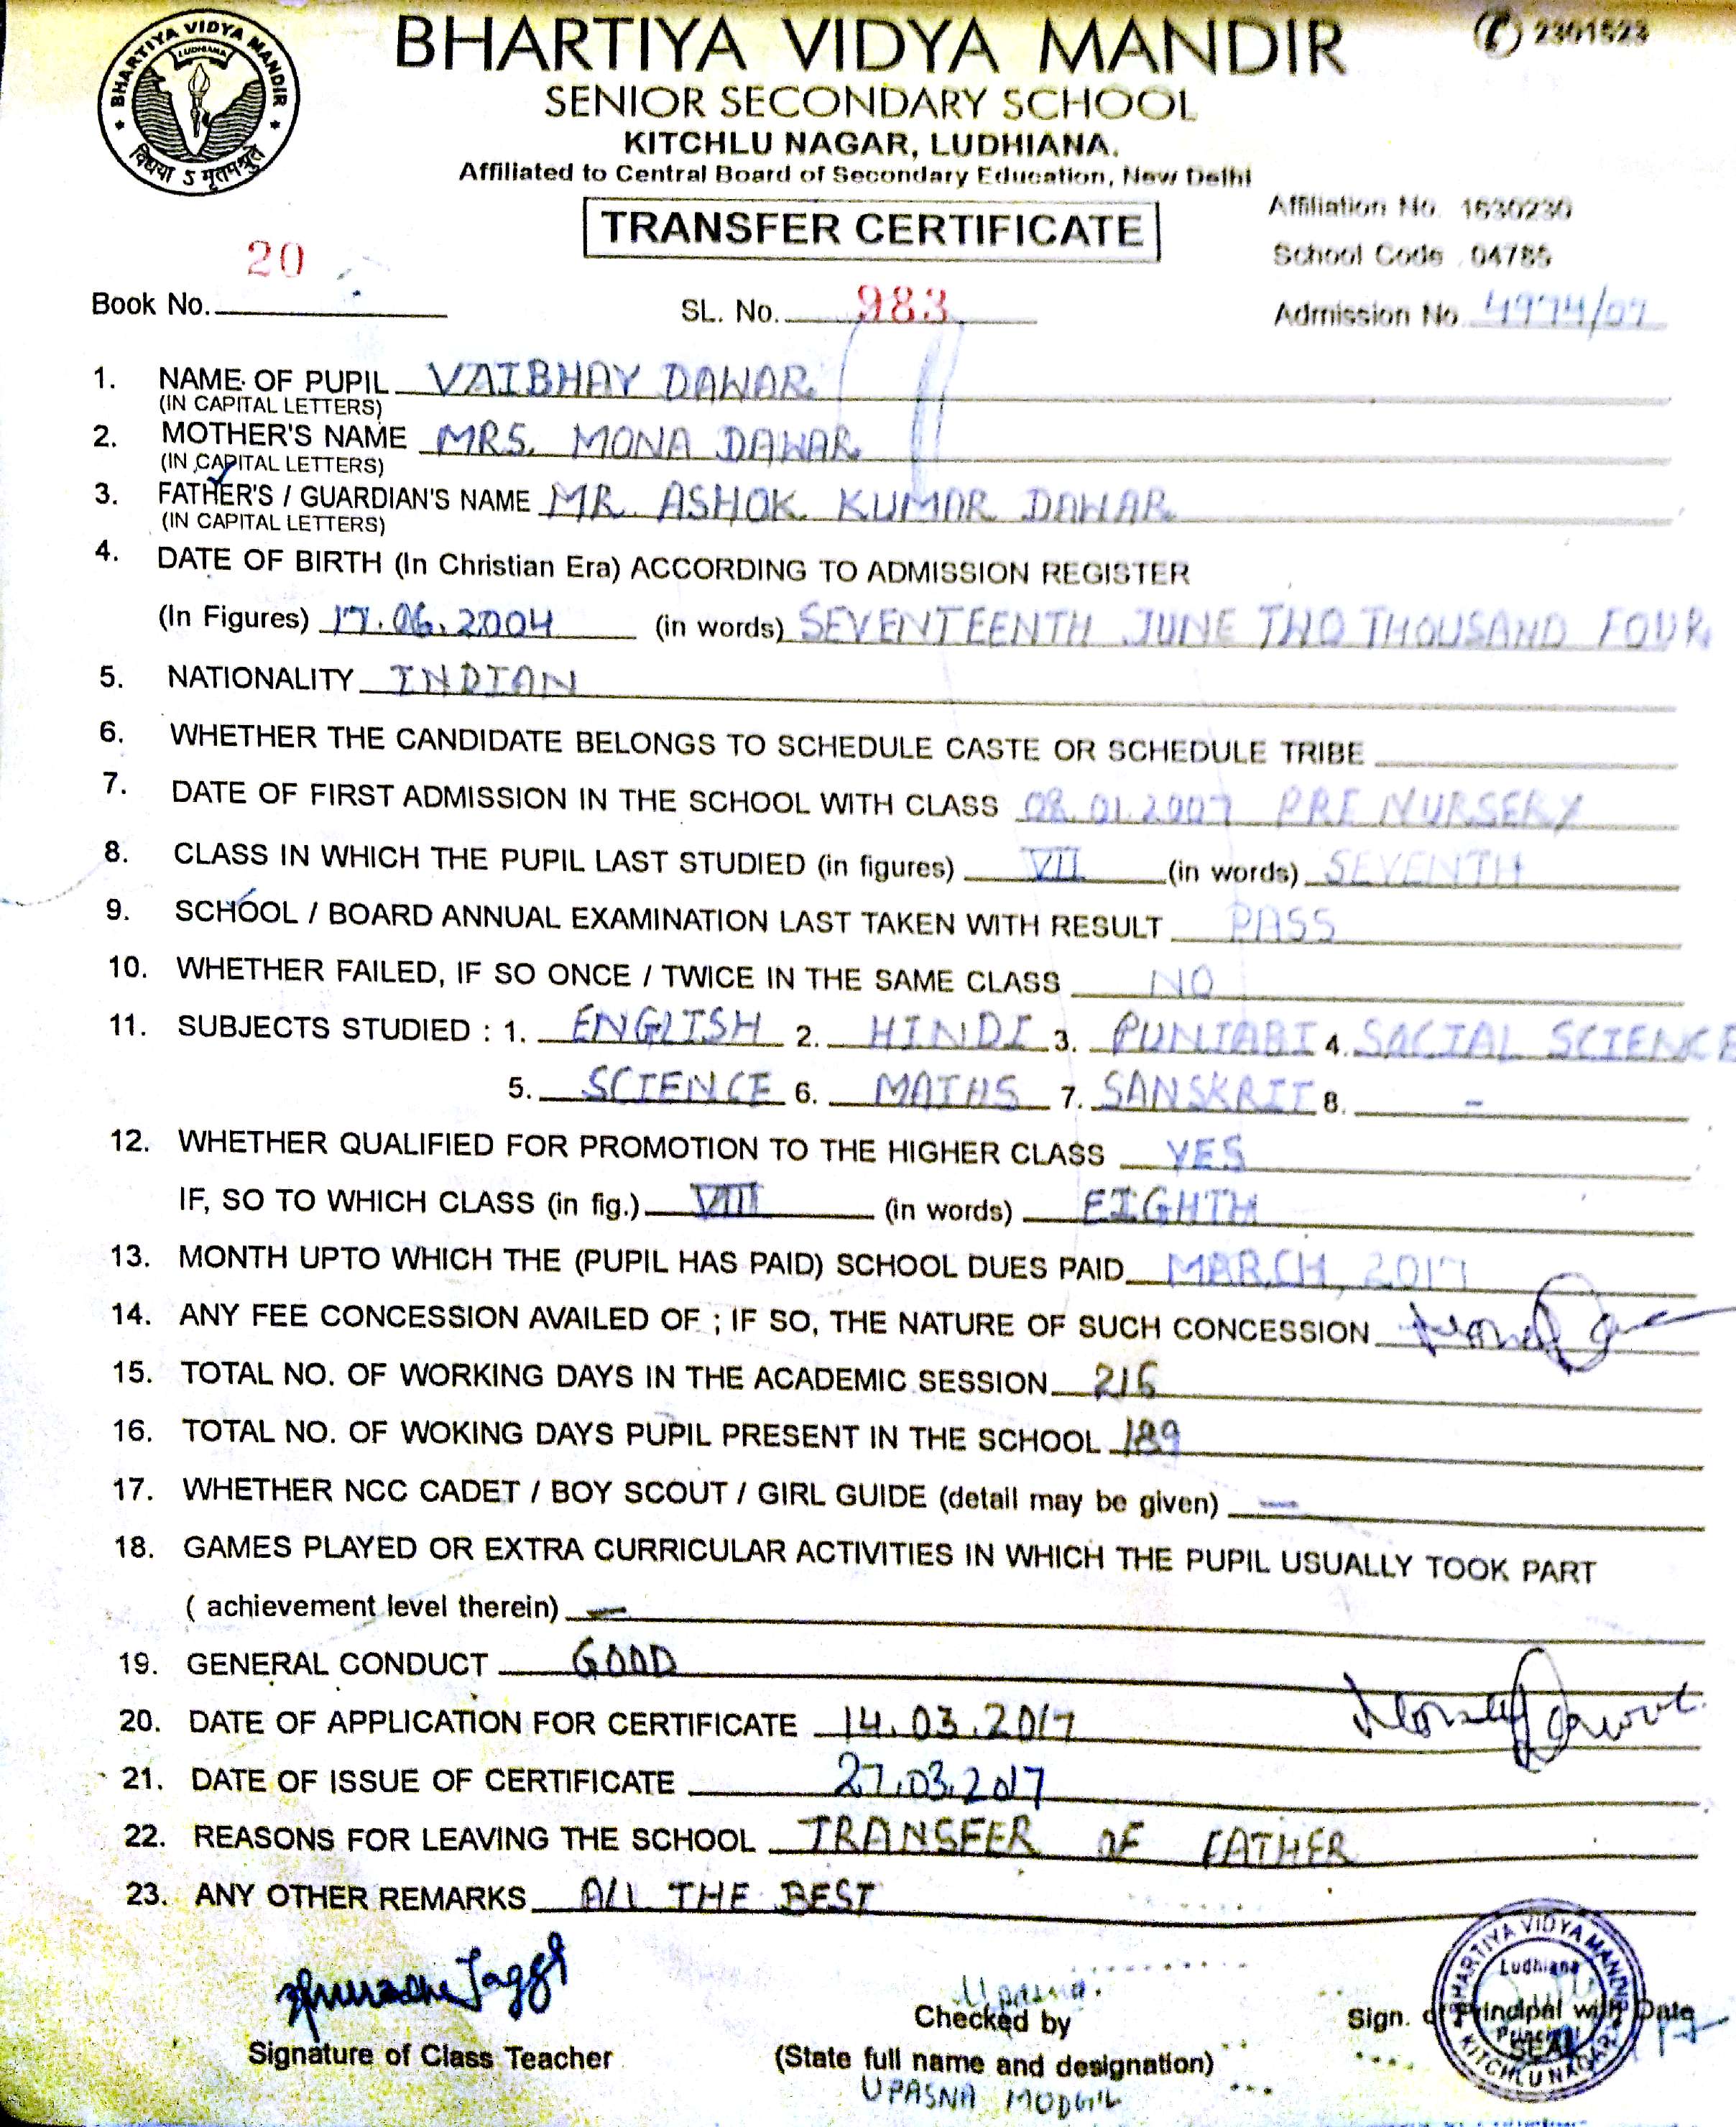 BHARTIYA VIDYA MANDIR
2301523
SENIOR SECONDARY SCHOOL
KITCHLU NAGAR, LUDHIANA.
Affiliated to Central Board of Secondary Education, New Delhi
BHARTIYA VIDYA MANDIR
LUDHIANA
विद्यया ऽ मृतमश्नुते
TRANSFER CERTIFICATE
Affiliation No. 1630230
School Code 04785
Book No. 20 SL. No. 983 Admission No 4974/07
1. NAME OF PUPIL VAIBHAV DAWAR
(IN CAPITAL LETTERS)
2. MOTHER'S NAME MRS. MONA DAWAR
(IN CAPITAL LETTERS)
3. FATHER'S / GUARDIAN'S NAME MR. ASHOK KUMAR DAWAR
(IN CAPITAL LETTERS)
4. DATE OF BIRTH (In Christian Era) ACCORDING TO ADMISSION REGISTER
(In Figures) 17.06.2004 (in words) SEVENTEENTH JUNE TWO THOUSAND FOUR
5. NATIONALITY INDIAN
6. WHETHER THE CANDIDATE BELONGS TO SCHEDULE CASTE OR SCHEDULE TRIBE
7. DATE OF FIRST ADMISSION IN THE SCHOOL WITH CLASS 08.01.2007 PRE NURSERY
8. CLASS IN WHICH THE PUPIL LAST STUDIED (in figures) VII (in words) SEVENTH
9. SCHOOL / BOARD ANNUAL EXAMINATION LAST TAKEN WITH RESULT PASS
10. WHETHER FAILED, IF SO ONCE / TWICE IN THE SAME CLASS NO
11. SUBJECTS STUDIED : 1. ENGLISH 2. HINDI 3. PUNJABI 4. SOCIAL SCIENCE
5. SCIENCE 6. MATHS 7. SANSKRIT 8. -
12. WHETHER QUALIFIED FOR PROMOTION TO THE HIGHER CLASS YES
IF, SO TO WHICH CLASS (in fig.) VIII (in words) EIGHTH
13. MONTH UPTO WHICH THE (PUPIL HAS PAID) SCHOOL DUES PAID MARCH, 2017
14. ANY FEE CONCESSION AVAILED OF ; IF SO, THE NATURE OF SUCH CONCESSION
15. TOTAL NO. OF WORKING DAYS IN THE ACADEMIC SESSION 216
16. TOTAL NO. OF WOKING DAYS PUPIL PRESENT IN THE SCHOOL 189
17. WHETHER NCC CADET / BOY SCOUT / GIRL GUIDE (detail may be given) —
18. GAMES PLAYED OR EXTRA CURRICULAR ACTIVITIES IN WHICH THE PUPIL USUALLY TOOK PART
( achievement level therein) —
19. GENERAL CONDUCT GOOD
20. DATE OF APPLICATION FOR CERTIFICATE 14.03.2017
21. DATE OF ISSUE OF CERTIFICATE 27.03.2017
22. REASONS FOR LEAVING THE SCHOOL TRANSFER OF FATHER
23. ANY OTHER REMARKS ALL THE BEST
Jaggi
Upasna.
Signature of Class Teacher
Checked by
(State full name and designation)
UPASNA MODGIL
Sign. of Principal with Date
SEAL
BHARTIYA VIDYA MANDIR
Ludhiana
Principal
KITCHLU NAGAR